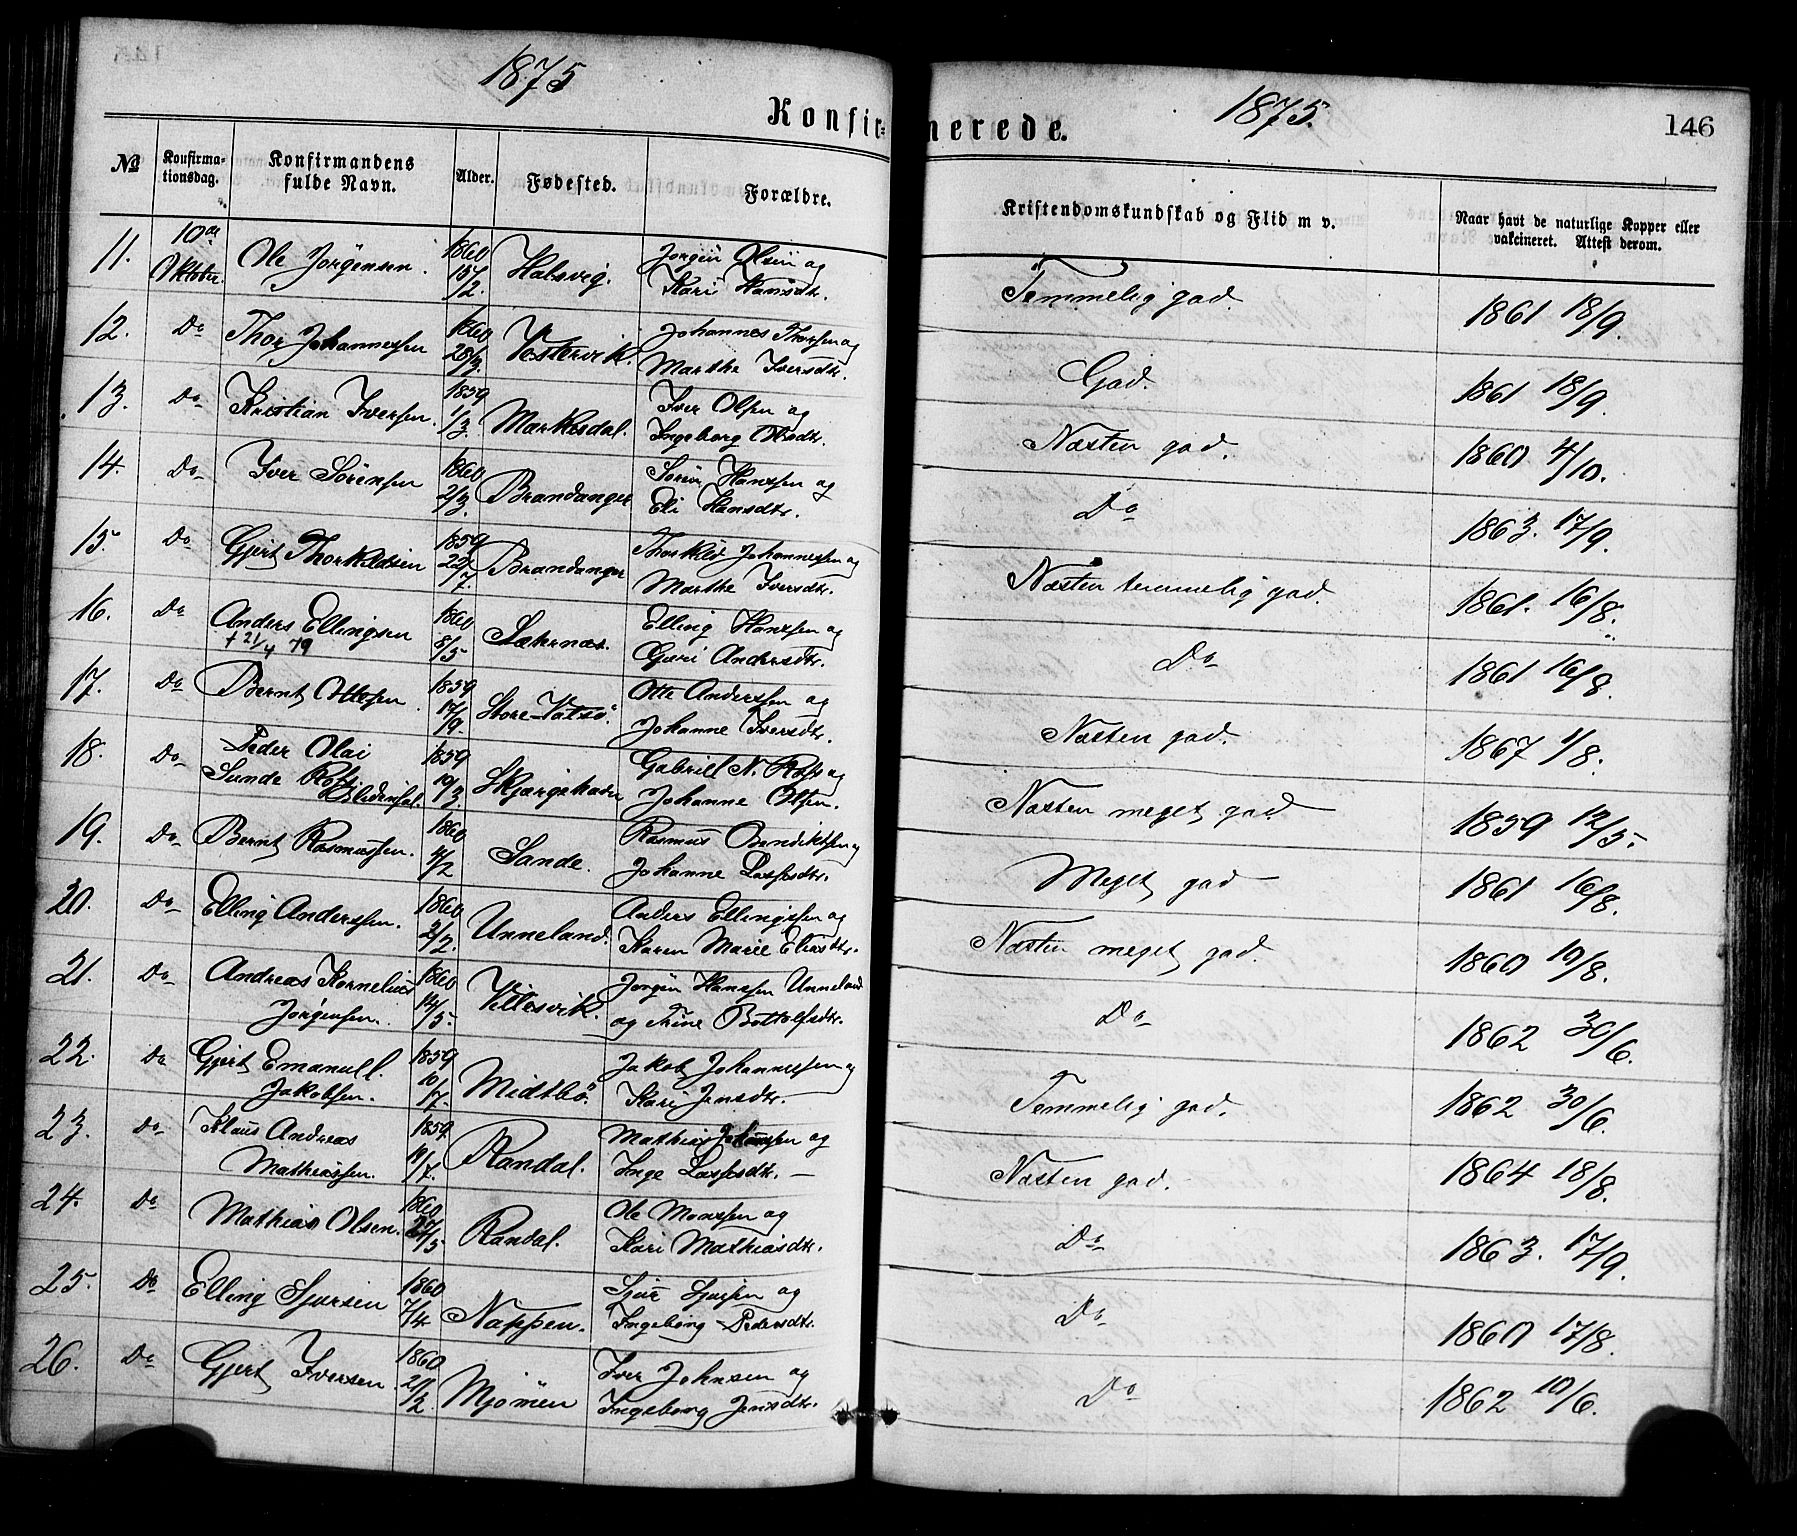 1875 1875. 146
Konfir= merede.
No Konfirma- tionsdag. Konfirmandens fulde Navn. Alder. Fødested. Forældre. Kristendomskundskab og Flid m v. Naar havt de naturlige Kopper eller vakcineret. Attest derom.
11. 10de Oktober. Ole Jørgensen. 1860 15/2. Halsvig. Jørgen Olsen og Kari Hansdtr. Temmelig god. 1861 18/9.
12. Do Thor Johannessen 1860 28/3. Vestervik. Johannes Thorsen og Marthe Iversdtr. God. 1861 18/9.
13. Do Kristian Iversen. 1859 1/3. Markesdal. Iver Olsen og Ingeborg Olsdtr. Næsten god. 1860 4/10.
14. Do Iver Sörensen 1860 2/3. Brandanger Sören Hanssen og Eli Hansdtr. Do 1863. 17/9.
15. Do Gjert Thorkildsen 1859 22/7. Brandanger Thorkild Johannessen og Marthe Iversdtr. Næsten temmelig god. 1861. 16/8.
16. Do Anders Ellingsen 1860 8/5 Elling Hanssen og Guri Andersdtr. Do 1861 16/8.
† 21/4 79
17. Do Bernt Ottesen. 1859 17/9. Store-Vatsö. Otte Anderssen og Johanne Iversdtr. Næsten god. 1867 1/8.
18. Do Peder Olai Sunde 1859 19/3 Skjærgehavn Gabriel N. og Johanne Olsen. Næsten meget god 1859 12/5.
19. Do Bernt Rasmussen. 1860 4/2 Sande. Rasmus Bendiktsen og Johanne Lassesdtr. Meget god 1861 16/8.
20. Do Elling Anderssen. 1860 2/2. Unneland. Anders Ellingssen og Karen Marie Eliasdtr. Næsten meget god. 1860 10/8.
21. Do Andreas Kornelius Jørgensen. 1860 14/5. Villesvik. Jørgen Hanssen Unneland og Trine Bottolfsdtr. Do 1862 30/6.
22. Do Gjert Emanuel. Jakobsen. 1859 10/7. Midtbö. Jakob Johannessen og Kari Jensdtr. Temmelig god. 1862 30/6.
23. Do Klaus Andreas Mathiassen. 1859. 11/7. Randal. Mathias Johanssen og Inge Lassesdtr. Næsten god. 1864 18/8.
24. Do Mathias Olsen. 1860 27/5 Randal. Ole Monssen og Kari Mathiasdtr. Do 1863. 17/9.
25. Do Elling Sjursen 1860 7/4 Nappen. Sjur Sjursen og Ingeborg Pedersdtr. Do 1860 17/8.
26. Do Gjert Iversen 1860 21/2. Mjömen Iver Johnsen og Ingeborg Jensdtr. Do 1862 10/6.